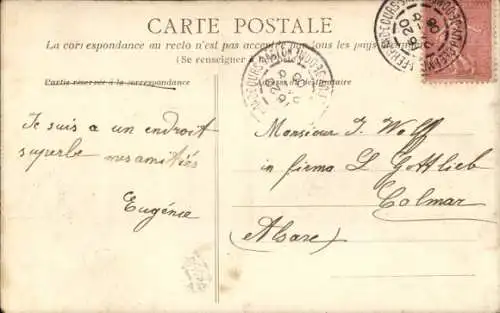 CARTE POSTALE
La correspondance au recto n'est pas acceptée par tous les pays étrangers
(Se renseigner à la
Partie réservée à la correspondance
Adresse du destinataire
Je suis a un endroit
superbe mes amitiés
Eugénie
Monsieur J. Wolff
in firma L Gottlieb
Colmar
(Alsace)